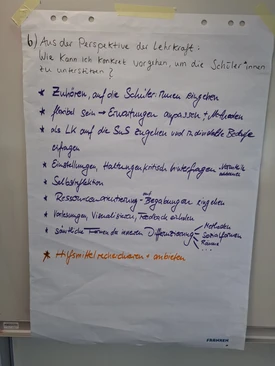 b) Aus der Perspektive der Lehrkraft:
Wie kann ich konkret vorgehen, um die Schüler*innen
zu unterstützen?
* Zuhören, auf die Schüler*innen eingehen
* flexibel sein → Erwartungen anpassen + Methoden
* als LK auf die SuS zugehen und individuelle Bedarfe
erfragen
* Einstellungen, Haltungen kritisch hinterfragen
* Selbstreflexion
* Ressourcenorientierung + auf Begabungen eingehen
* Vorlesungen, Visualisieren, Feedback einholen
* sämtliche Formen der inneren Differenzierung → Methoden
→ Sozialformen
→ Räume
...
* Hilfsmittel recherchieren + anbieten
FRANKEN